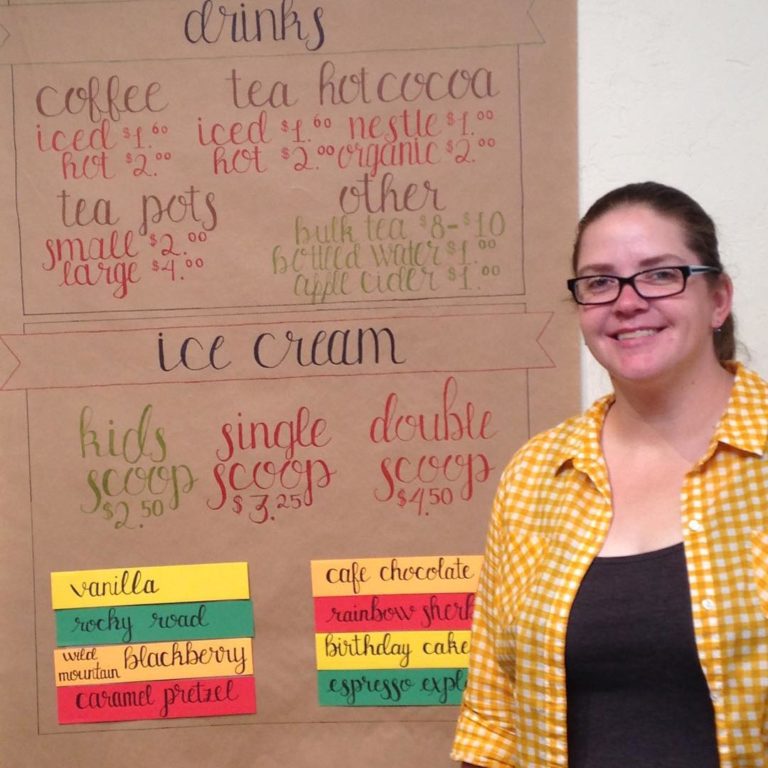 drinks
coffee
iced $1.60
hot $2.00
tea
iced $1.60
hot $2.00
hot cocoa
nestle $1.00
organic $2.00
tea pots
small $2.00
large $4.00
other
bulk tea $8-$10
bottled water $1.00
apple cider $1.00
ice cream
kids
scoop
$2.50
single
scoop
$3.25
double
scoop
$4.50
vanilla
rocky road
wild mountain blackberry
caramel pretzel
cafe chocolate
rainbow sherb
birthday cake
espresso explo